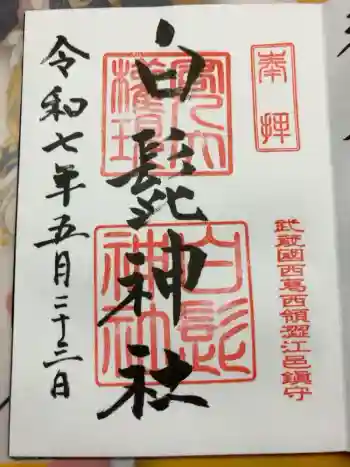 奉拝
武蔵國西葛西領澀江邑鎮守
白髭神社
客人大權現
白髭神社
令和七年五月二十三日